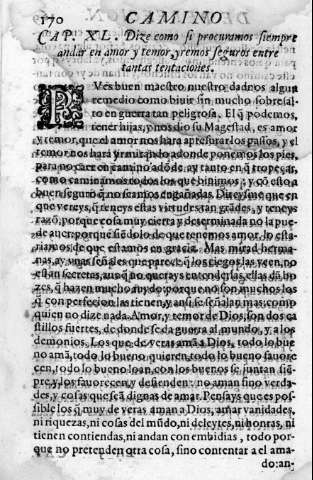 170 CAMINO
CAP. XL. Dize como si procuramos siempre
andar en amor y temor, yremos seguros entre
tantas tentaciones.
PVes buen maestro nuestro dadnos algun
remedio como biuir sin mucho sobresal-
to en guerra tan peligrosa. El q̃ podemos,
tener hijas, y nos dio su Magestad, es amor
y temor, que el amor nos hara apresurar los passos, y el
temor nos hara yr mirando adonde ponemos los pies,
para no caer en camino adõde ay tanto en q̃ tropeçar,
como caminamos todos los que biuimos; y cõ esto a
buen seguro q̃ no seamos engañadas. Direysme que en
que vereys, q̃ teneys estas virtudes tan grãdes, y teneys
razõ, porque cosa muy cierta y determinada no la pue-
de auer, porque siẽdolo de que tenemos amor, lo esta-
riamos de que estamos en gracia. Mas mirad herma-
nas, ay vnas señales que parece q̃ los ciegos las veen, no
estan secretas, aunq̃ no querays entenderlas, ellas dã bo-
zes, q̃ hazen mucho ruydo, porque no son muchos los
q̃ con perfeccion las tienen, y ansi se señalan mas, como
quien no dize nada. Amor, y temor de Dios, son dos ca
stillos fuertes, de donde se da guerra al mundo, y a los
demonios. Los que de veras amã a Dios, todo lo bue
no amã, todo lo bueno quieren, todo lo bueno fauore
cen, todo lo bueno loan, con los buenos se juntan siẽ-
pre, y los fauorecen, y defienden: no aman sino verda-
des, y cosas que seã dignas de amar. Pensays que es pos-
sible los q̃ muy de veras aman a Dios, amar vanidades,
ni riquezas, ni cosas del mũdo, ni deleytes, ni honras, ni
tienen contiendas, ni andan con embidias, todo por-
que no pretenden otra cosa, sino contentar a el ama-
do: an-